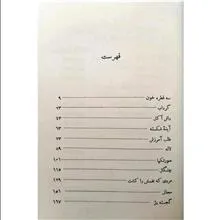 فهرست
سه قطره خون ۹
گرداب ۲۳
داش آکل ۴۳
آینهٔ شکسته ۶۳
طلب آمرزش ۷۳
لاله ۸۹
صورتکها ۱۰۱
چنگال ۱۱۵
مردی که نفسش را کشت ۱۲۹
محلل ۱۵۱
گجسته دژ ۱۶۷